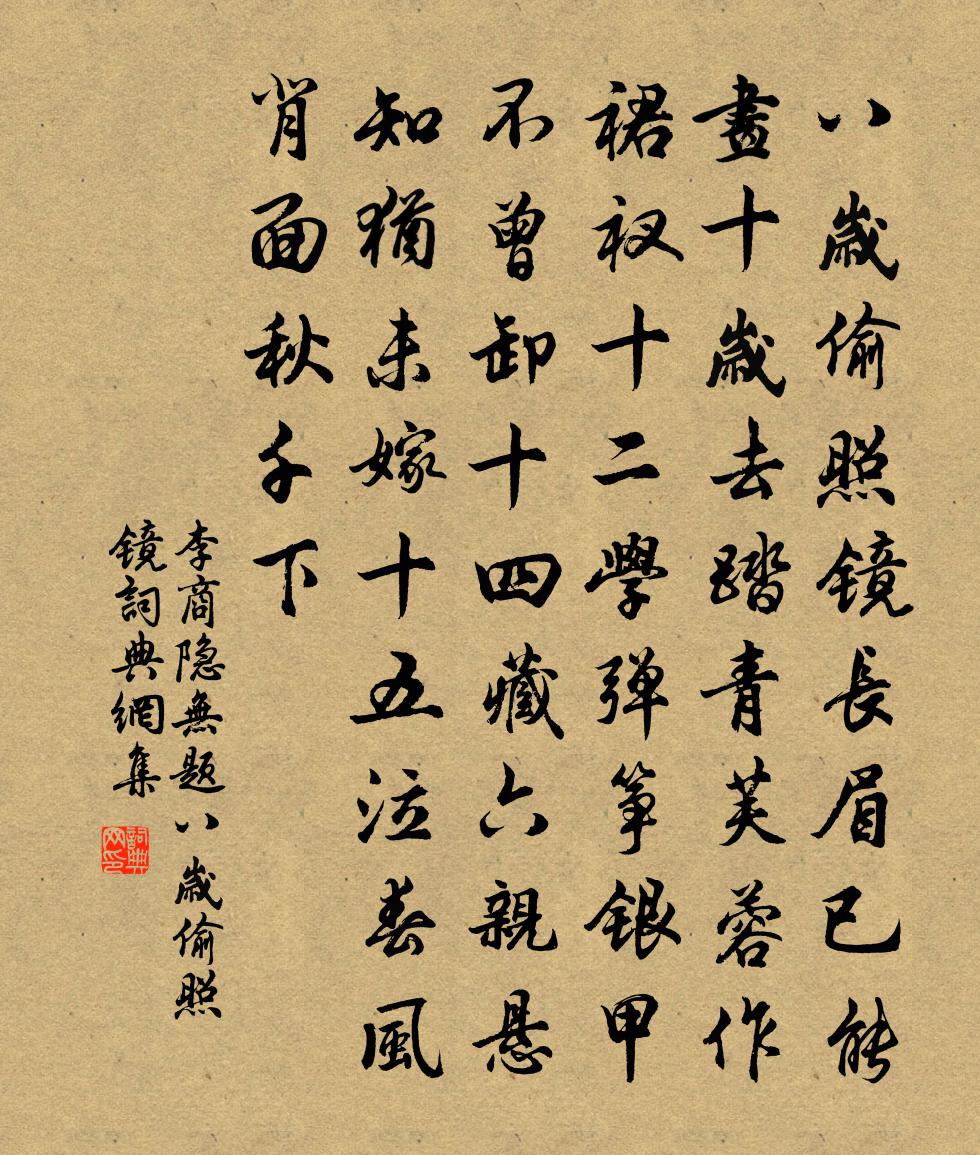 八歲偷照镜長眉已能
畫十歲去踏青芙蓉作
裙衩十二學弹筝銀甲
不曾卸十四藏六親悬
知猶未嫁十五泣春風
背面秋千下
李商隐無題八歲偷照
镜詞典網集
詞典
网印